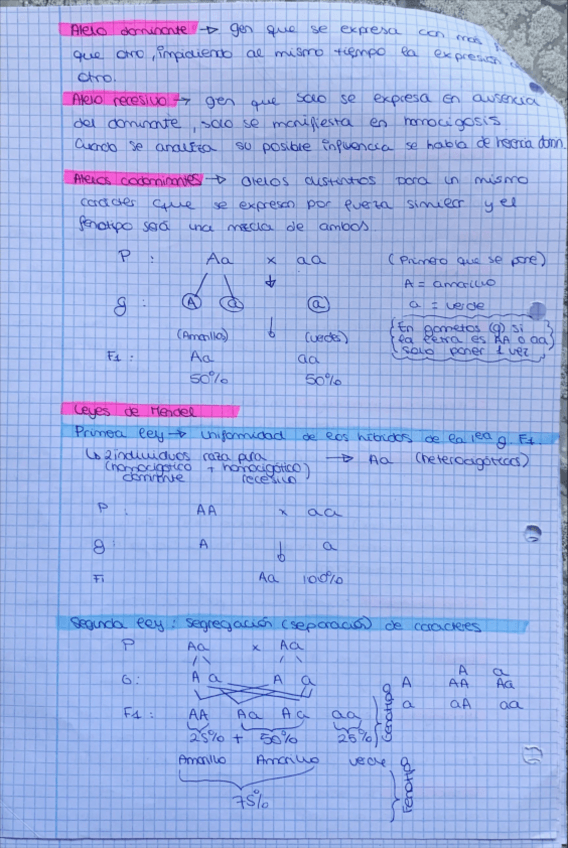 Alelo dominante → gen que se expresa con mas
que otro, impidiendo al mismo tiempo la expresion
otro.
Alelo recesivo → gen que solo se expresa en ausencia
del dominante, solo se manifiesta en homocigosis
Cuando se analiza su posible influencia se habla de herencia dom.
Alelos codominantes → alelos distintos para un mismo
carácter que se expresan por fuerza similar y el
fenotipo será una mezcla de ambos.
P : Aa x aa (Primero que se pone)
A = amarillo
g : A a a a = verde
(Amarillo) (verdes)
{En gametos (g) si
la letra es AA o aa
solo poner 1 vez}
F1 : Aa aa
50% 50%
Leyes de Mendel
Primera ley → uniformidad de los híbridos de la 1ea g. F1
↳ 2 individuos raza pura → Aa (heterocigóticos)
(homocigótico + homocigótico)
dominante recesivo
P : AA x aa
g : A a
F1 Aa 100%
Segunda ley : segregación (separación) de caracteres
P Aa x Aa
G : A a A a
A a
A AA Aa
a aA aa
F1 : AA Aa Aa aa
25% + 50% 25%
Genotipo
Amarillo Amarillo verde
75%
Fenotipo